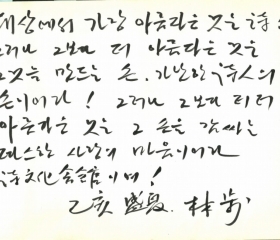 세상에서 가장 아름다운 것은 詩
그러나 그보다 더 아름다운 것은
그것을 만드는 손. 가난한 詩人의
손이어라! 그러나 그보다 더더
아름다운 것은 그 손을 감싸는
따스한 사랑의 마음이어라
文化会館이여!
乙亥 盛夏. 林